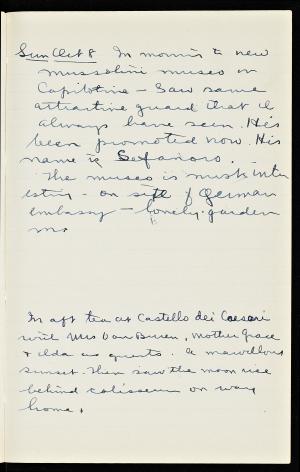 Sun Oct 8 In mornin to new
mussolini museo on
Capitoline - Saw same
attractive guard that I
always have seen. He's
been promoted now. His
name is
The museo is most inter
esting - on site of German
embassy - lovely garden
In aft tea at Castello dei Caesari
with Mrs Van Buren, Mother Grace
+ Ilda as guests. A marvellous
sunset. Then saw the moon rise
behind coliseum on way
home.